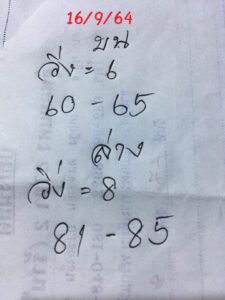 16/9/64
บน
วิ่ง = 6
60 - 65
ล่าง
วิ่ง = 8
81 - 85